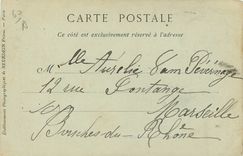 CARTE POSTALE
Ce côté est exclusivement réservé à l'adresse
M lle Aurélie
12 rue Fontange
Marseille
Bouches-du-Rhône
Etablissements Photographiques de NEURDEIN Frères. — Paris